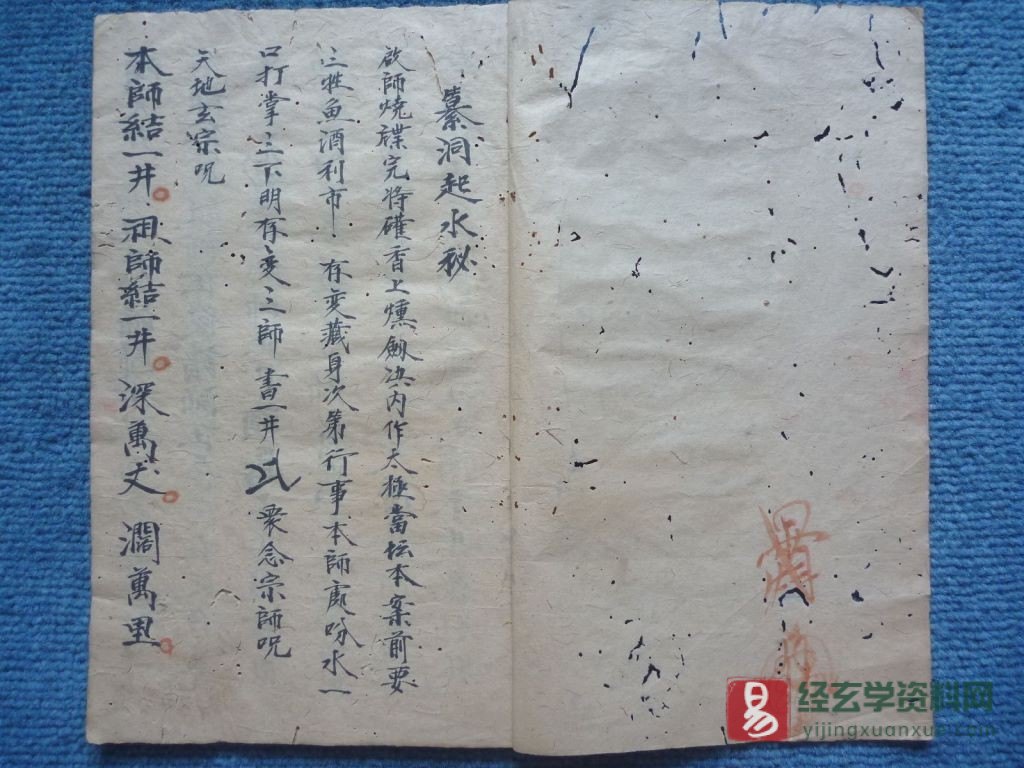 纂洞起水秘
啟師燒牒完將碓香上燻劔决内作太極當坛本案前要
三牲魚酒利市 存変藏身次第行事本師處吩水一
口打掌三下明存変三師 書一井 衆念宗師咒
天地玄宗咒
本師結一井。祖師結一井。深萬丈。濶萬里。
易
经玄学资料网
yijingxuanxue.com